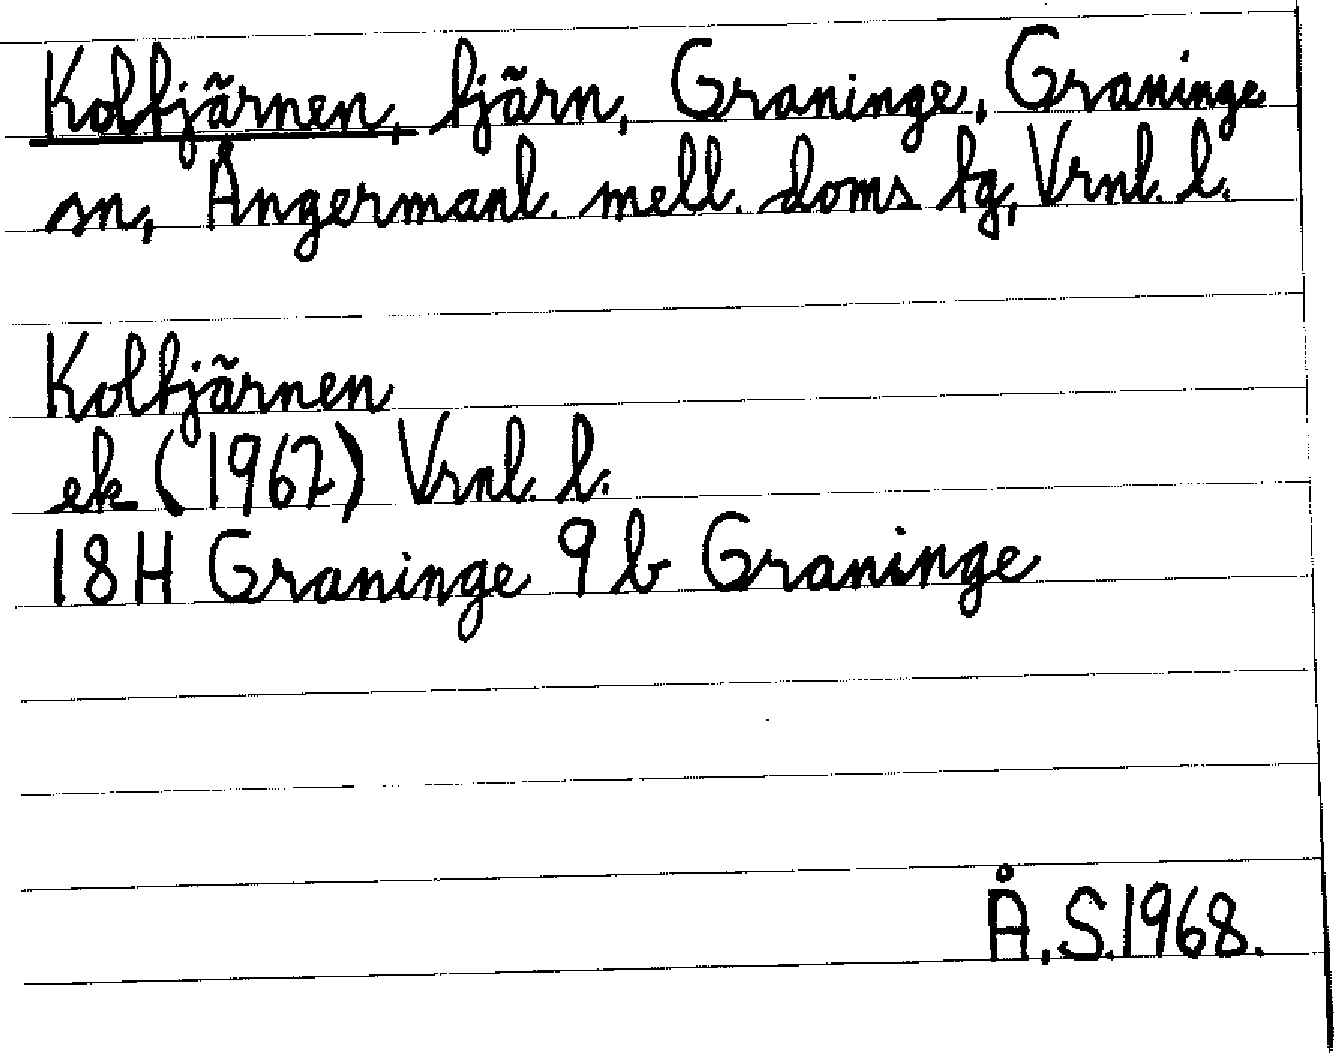 Koltjärnen, tjärn, Graninge, Graninge
sn, Ångermanl. mell. doms tg, Vrnl. l.
Koltjärnen
ek (1967) Vrnl. l.
18H Graninge 9 b Graninge
Å. S. 1968.